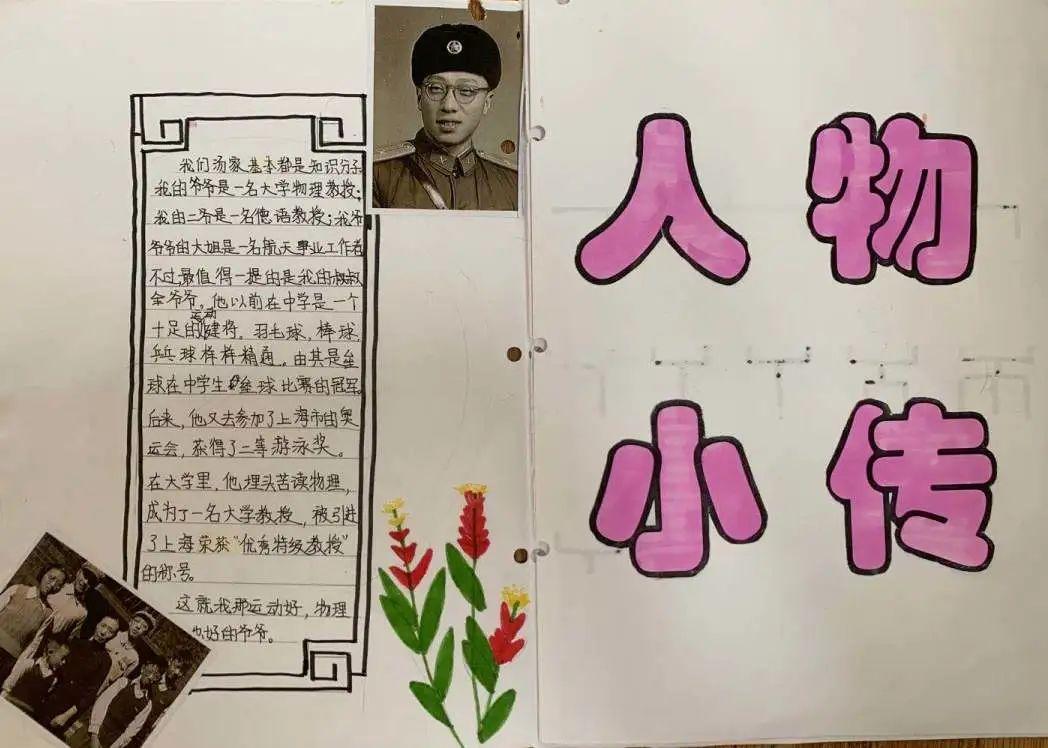 我们汤家基本都是知识分子。
我的爷爷是一名大学物理教授;
我的二爷是一名德语教授;我爷
爷爷的大姐是一名航天事业工作者
不过,最值得一提的是我的叔叔
全爷爷。他以前在中学是一个
十足的运动健将。羽毛球,棒球,
乒乓球样样精通。由其是垒
球在中学生垒球比赛的冠军。
后来,他又去参加了上海市的奥
运会,获得了二等游泳奖。
在大学里,他埋头苦读物理,
成为了一名大学教授,被引进
了上海荣获"优秀特级教授"
的称号。
这就我那运动好,物理
也好的爷爷。
人物
小传